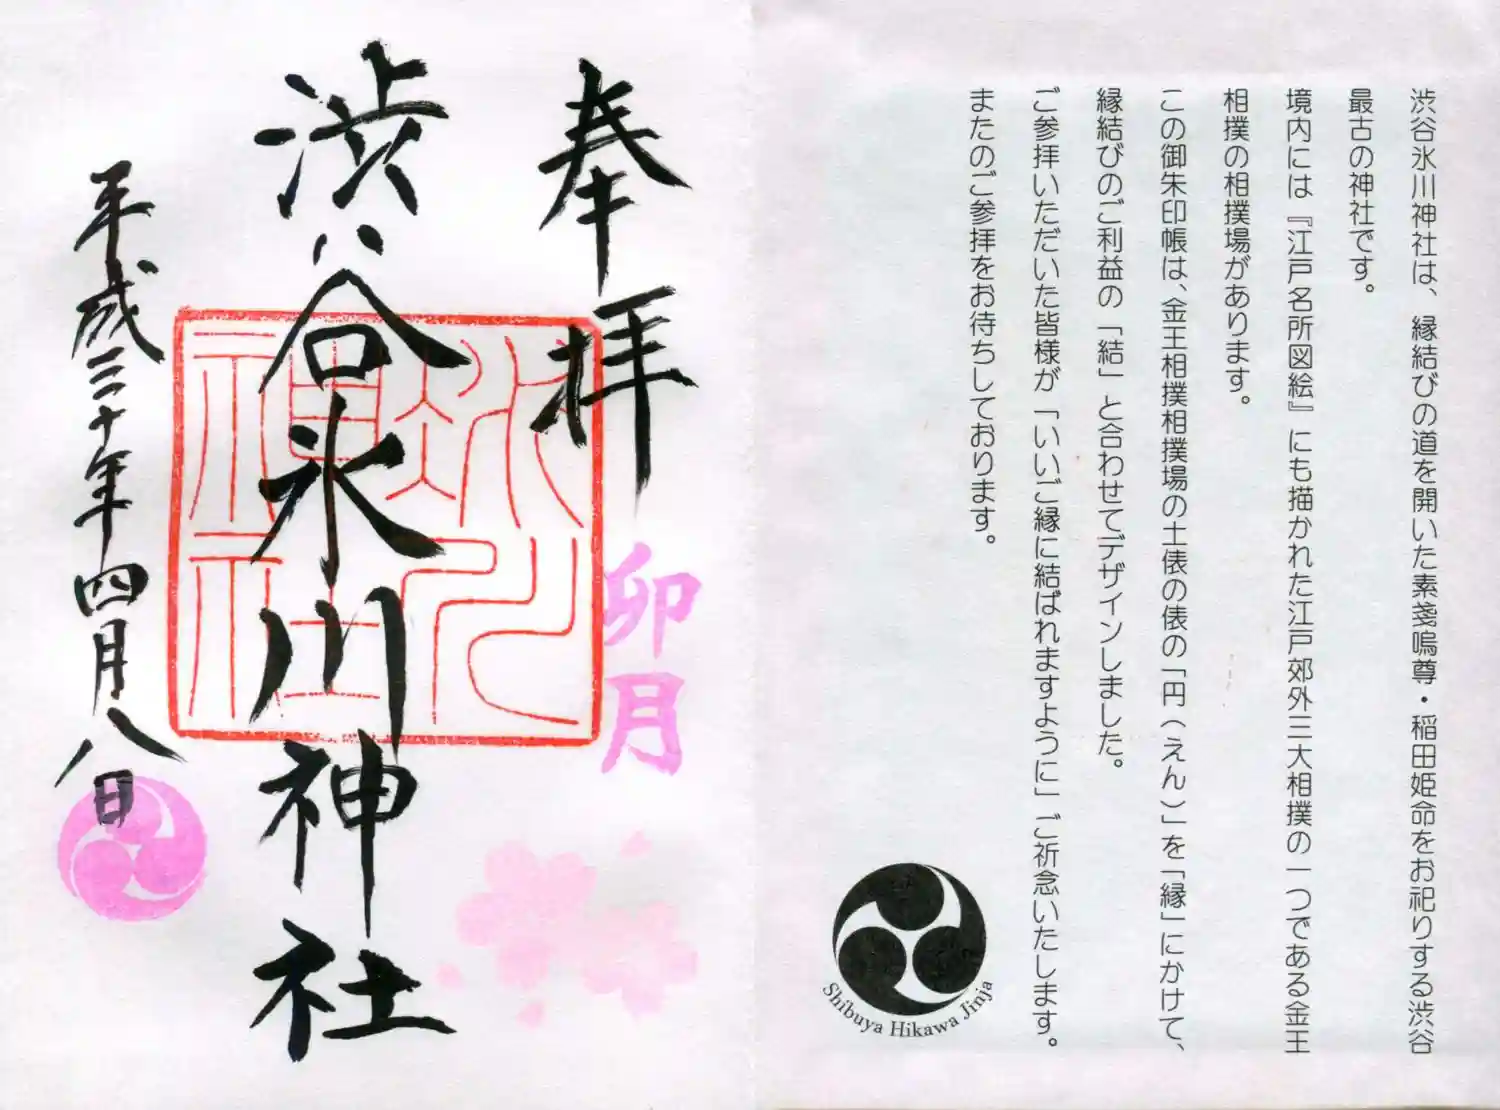 渋谷氷川神社は、縁結びの道を開いた素戔嗚尊・稲田姫命をお祀りする渋谷
最古の神社です。
境内には『江戸名所図絵』にも描かれた江戸郊外三大相撲の一つである金王
相撲の相撲場があります。
この御朱印帳は、金王相撲相撲場の土俵の俵の「円（えん）」を「縁」にかけて、
縁結びのご利益の「結」と合わせてデザインしました。
ご参拝いただいた皆様が「いいご縁に結ばれますように」ご祈念いたします。
またのご参拝をお待ちしております。
Shibuya Hikawa Jinja
奉拝
卯月
渋谷氷川神社
氷川
神社
平成三十年四月八日